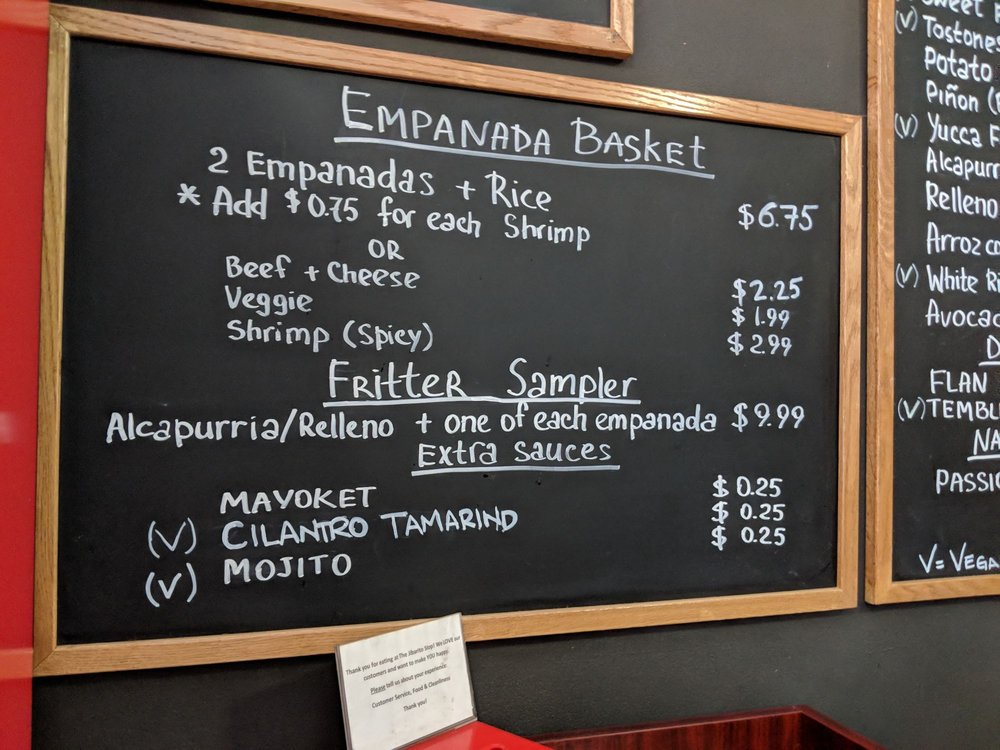 EMPANADA BASKET
2 Empanadas + Rice $6.75
* Add $0.75 for each Shrimp
OR
Beef + Cheese $2.25
Veggie $1.99
Shrimp (Spicy) $2.99
FRITTER Sampler
Alcapurria/Relleno + one of each empanada $9.99
Extra Sauces
MAYOKET $0.25
(V) CILANTRO TAMARIND $0.25
(V) MOJITO $0.25
Thank you for eating at The Jibarito Stop! We LOVE our
customers and want to make YOU happy.
Please tell us about your experience:
Customer Service, Food & Cleanliness
Thank you!
Sweet
(V) Tostones
Potato
Piñon
(V) Yucca
Alcapurr
Relleno
Arroz
(V) White
Avoca
FLAN
(V) TEMBL
NA
PASSIO
V= VEGA